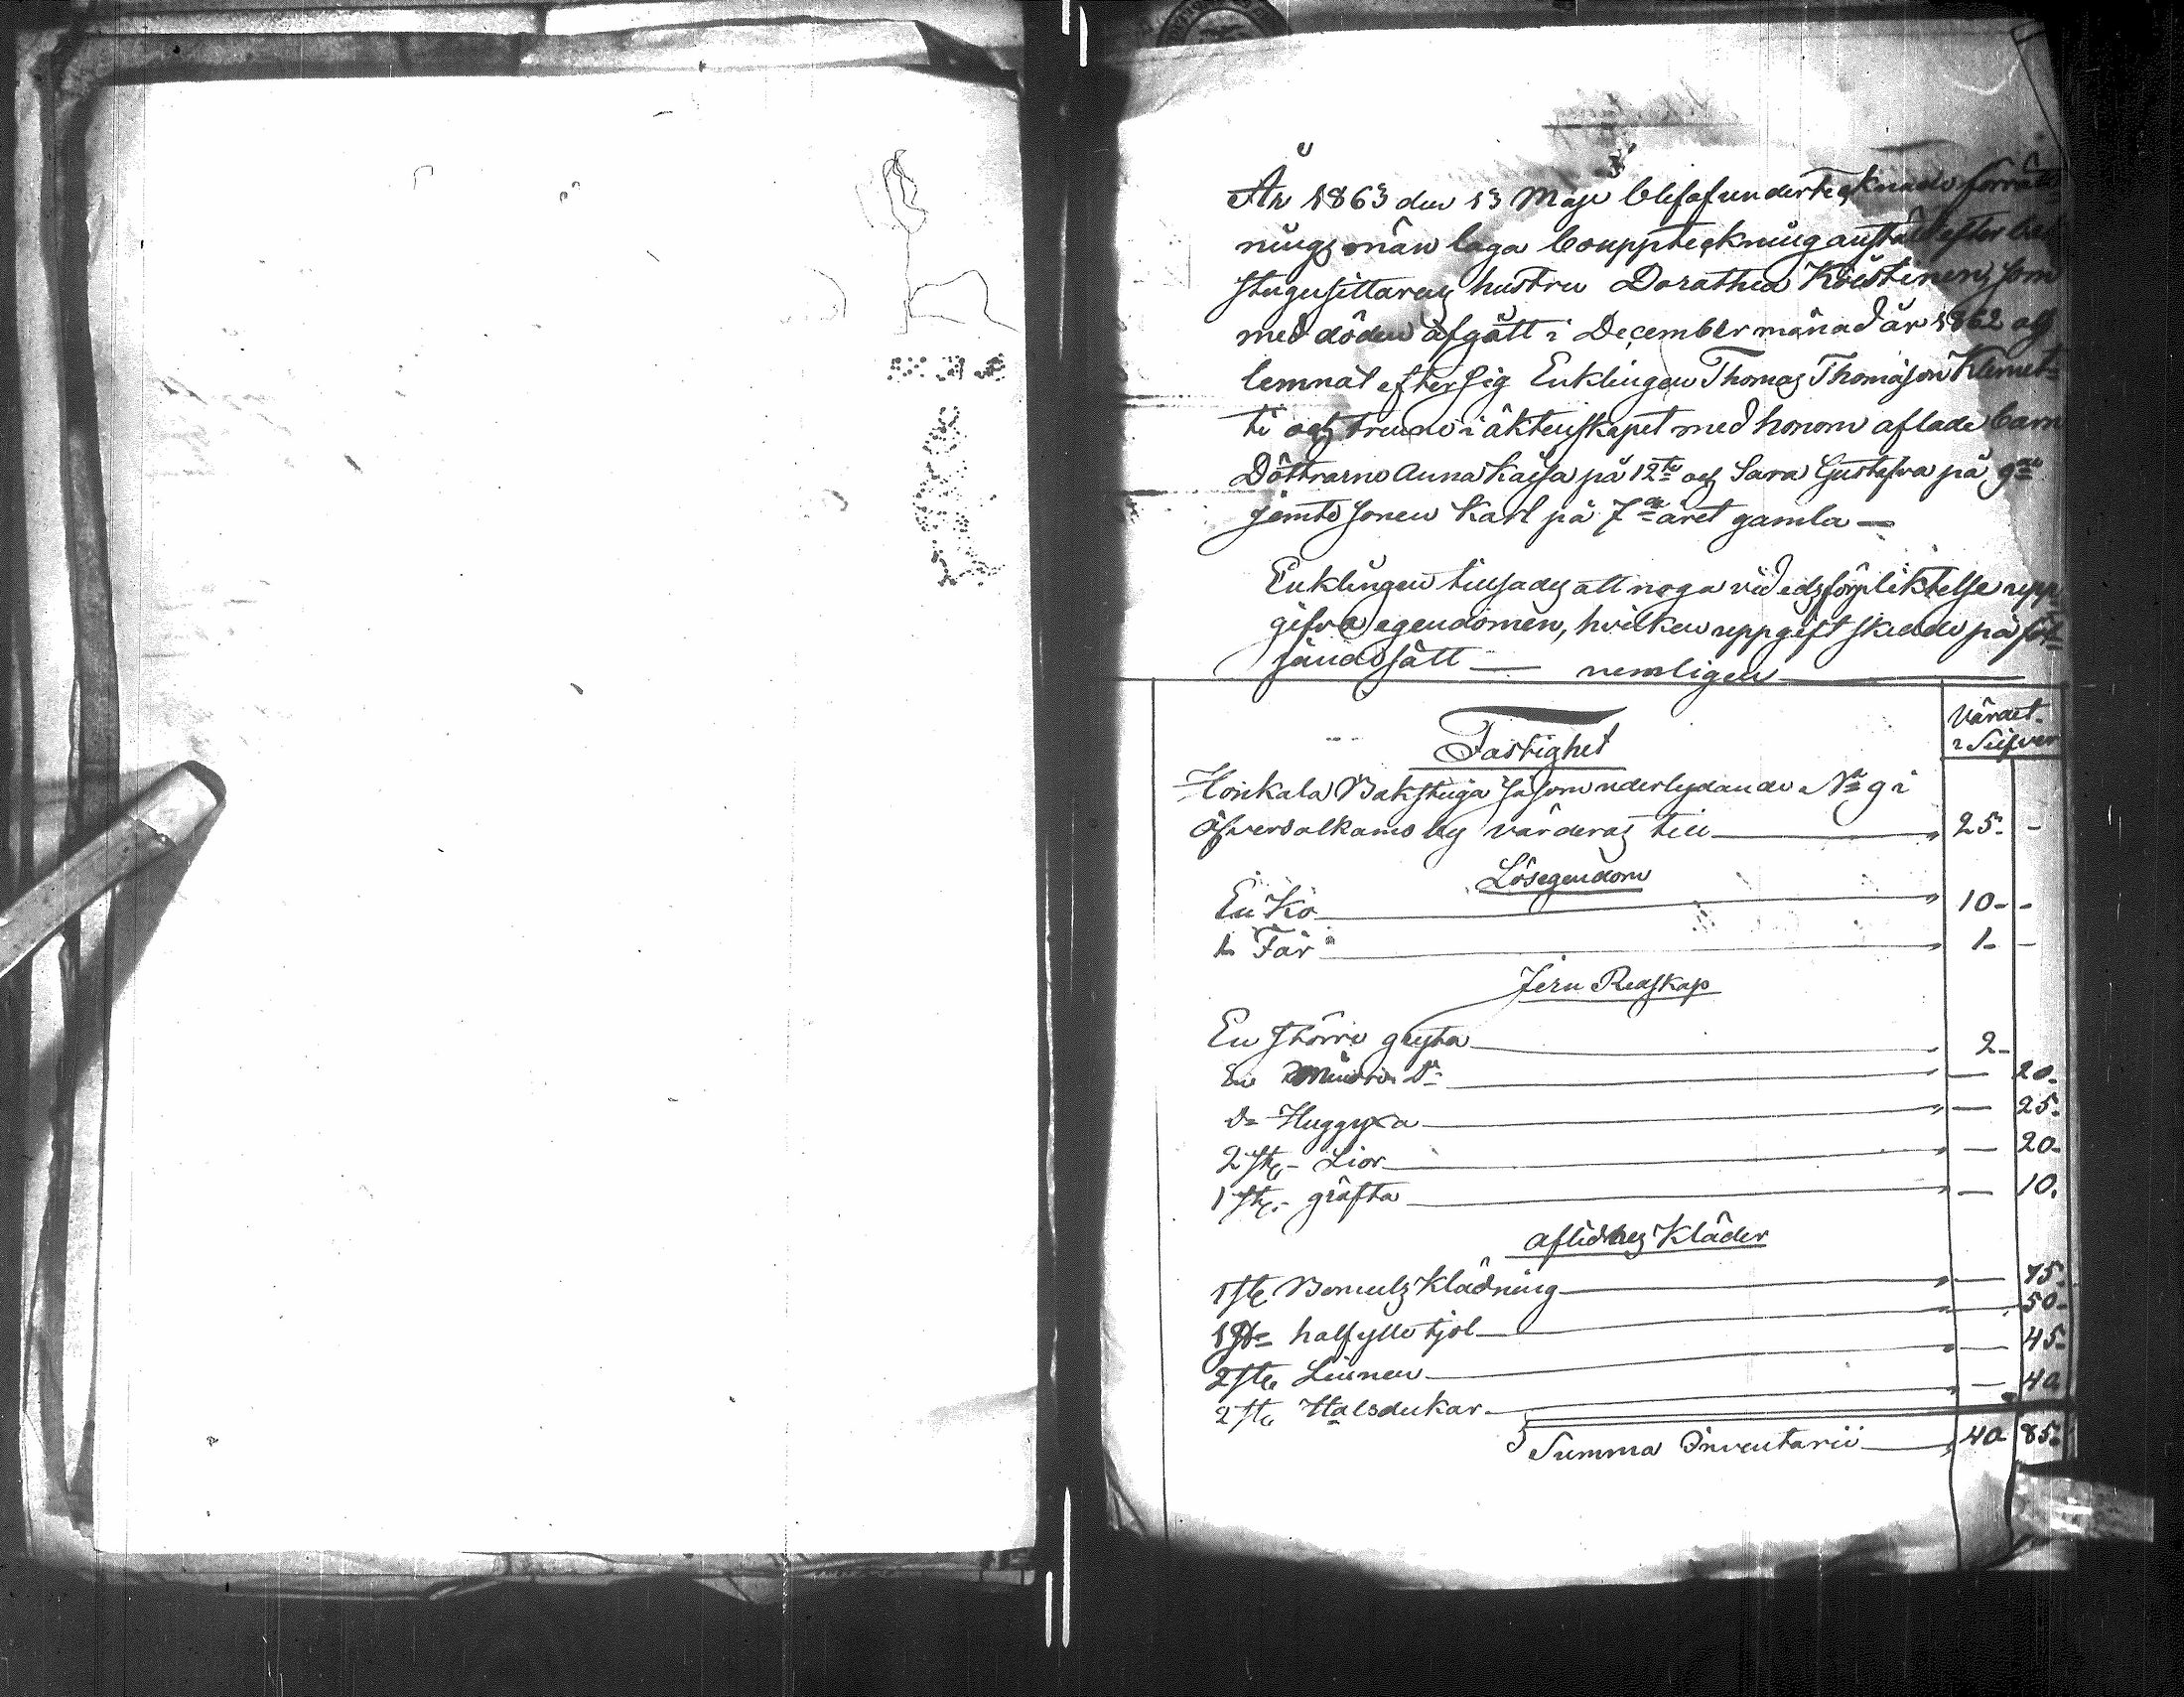 År 1863 den 13 Maji blef af undertecknade förrätt
nings män laga bouppteckning anstäld efter bak
stugusittarens hustru Dorathea Kristinen, som
med döden afgått i December månad år 1862 och
lemnat efter sig Enklingen Thomas Thomasson Klemet-
ti och trenne i äktenskapet med honom aflade barn
Döttrarne Anna Kaisa på 12te och Sara Gustafva på 9de
jemte sonen Karl på 7de året gamla —
Enklingen tillsades att noga vid edsförpliktelse upp
gifva egendomen, hvilken uppgift skedde på föl-
jande sätt — nemligen
Värdet
i Silfver
Fastighet
Honkala Bakstuga såsom underlydande No 9 i
Öfverdalkamo by värderas till 25. -
Lösegendom
En Ko 10 - -
1 Får 1 - -
Jern Redskap
En Större gryta 2 -
En Mindre Do — 20.
Do Huggyxa — 25.
2 st. Lior — 20.
1 st. gräfta — 10.
Aflidnes Kläder
1 st. Bomuls Klädning — 75.
1 st. halfylle kjol — 50.
2 st. Linnen — 45.
2 st. Halsdukar — 40
Summa Inventarii 40 85.